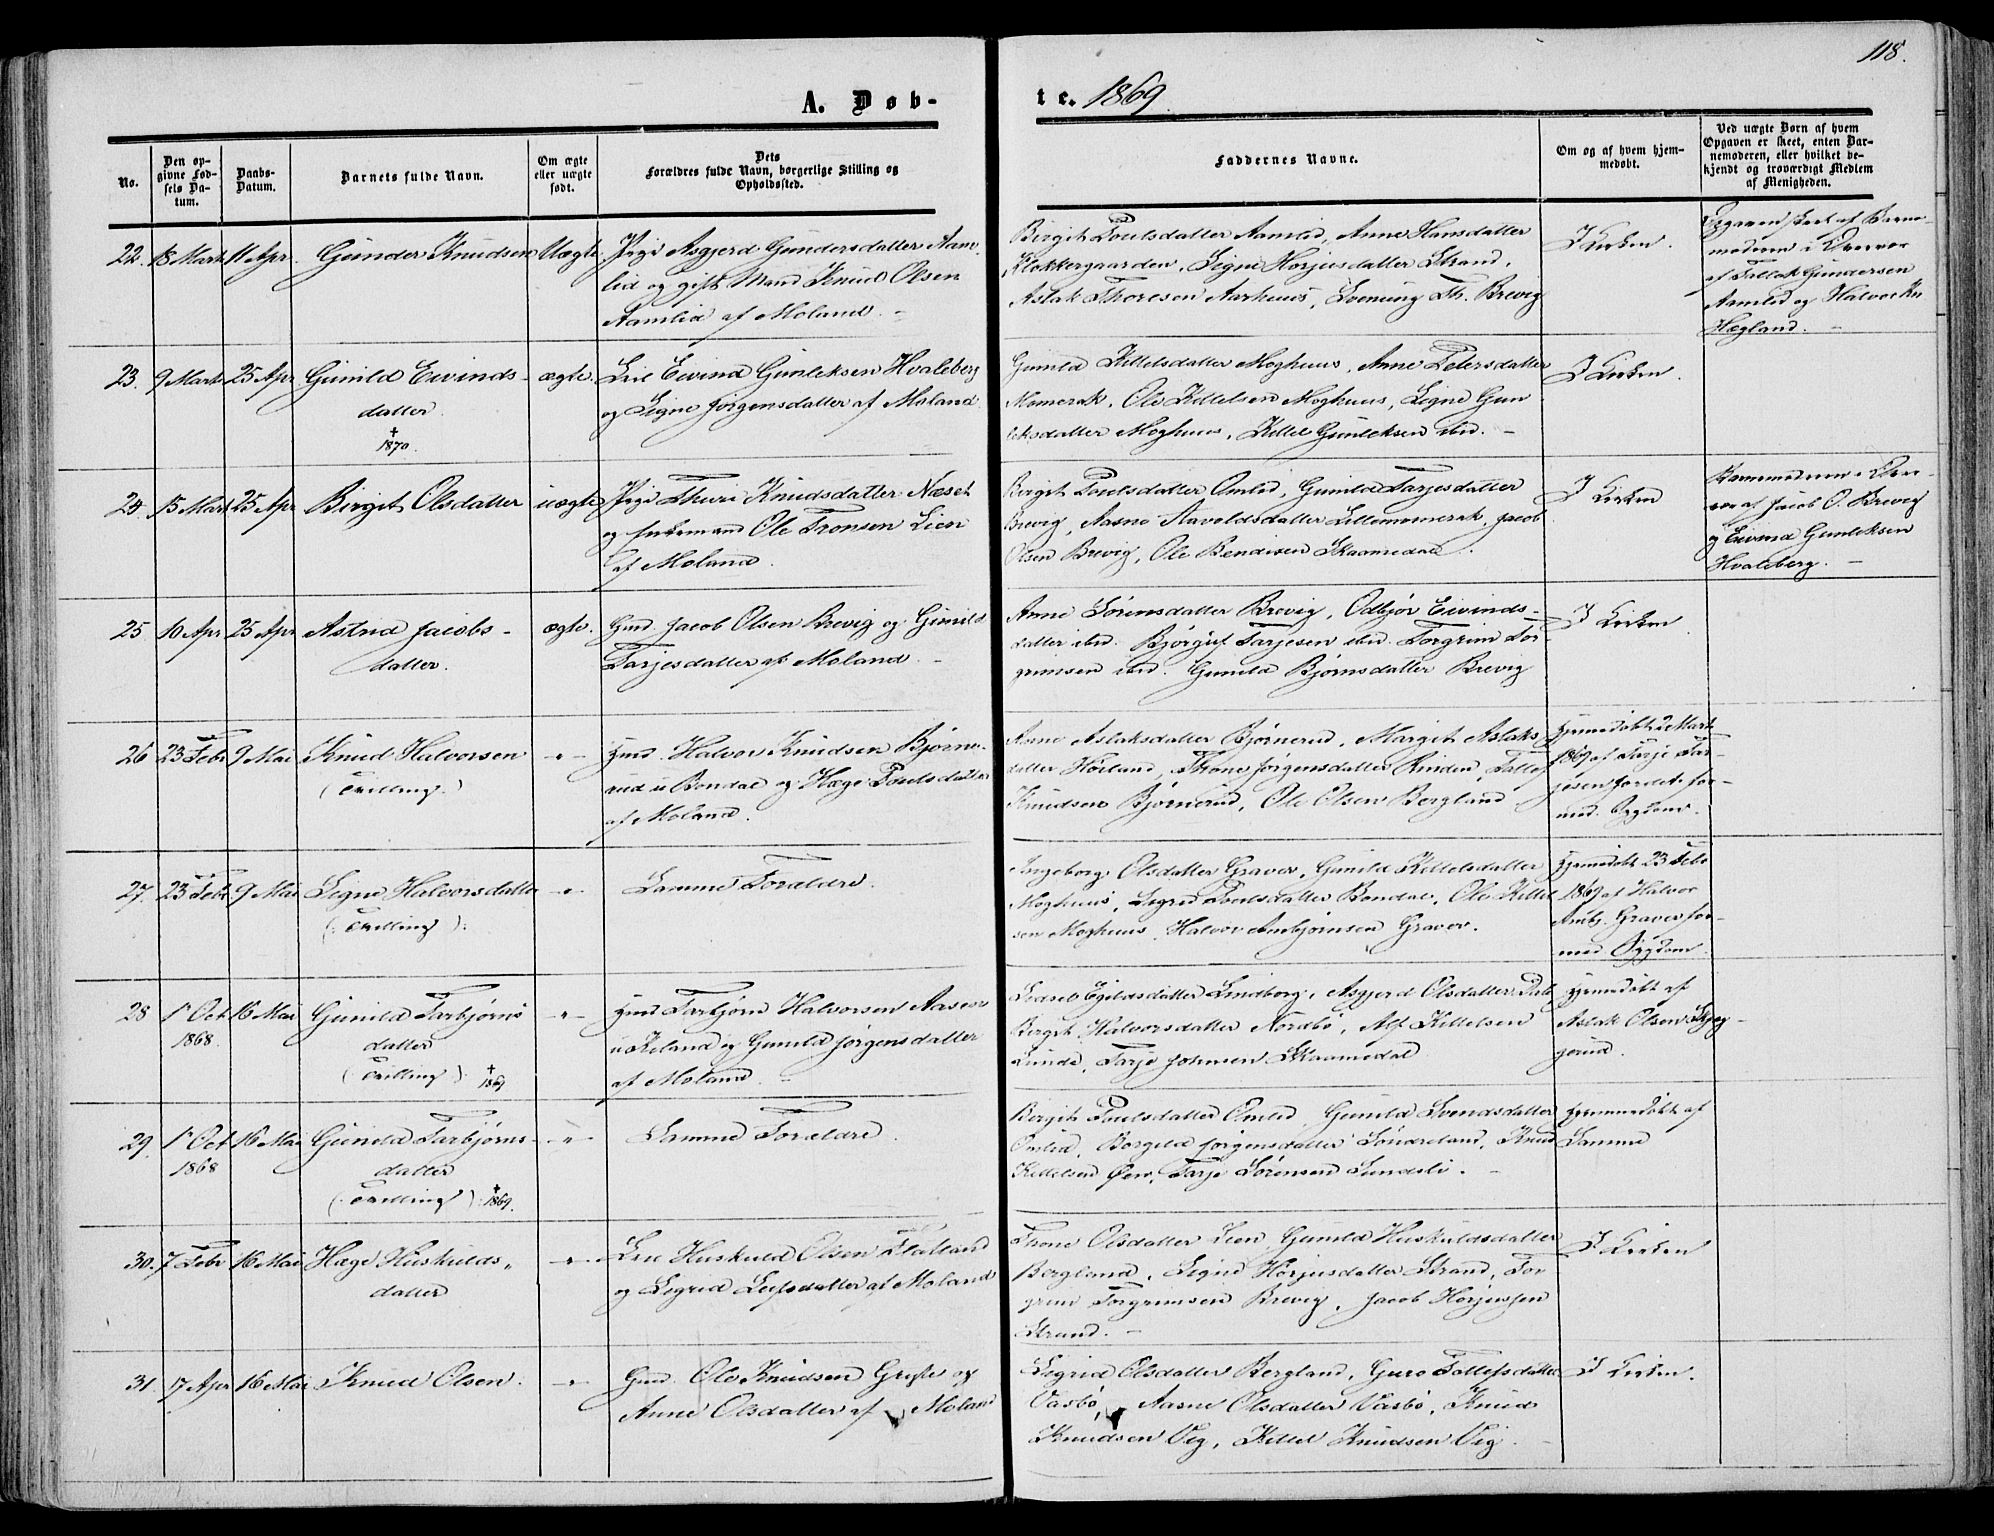 118.
A. Døb-
te. 1869.
No.
Den op-
givne Fød-
sels Da-
tum.
Daabs-
Datum.
Barnets fulde Navn.
Om ægte
eller uægte
født.
Dets
Forældres fulde Navn, borgerlige Stilling og
Opholdssted.
Faddernes Navne.
Om og af hvem hjem-
medøbt.
Ved uægte Børn af hvem
Opgaven er skeet, enten Bar-
nemoderen, eller hvilket be-
kjendt og troværdigt Medlem
af Menigheden.
22. 18 Marts 11 Apr. Gunder Knudsen Uægte.
Pige Asgjerd Gundersdatter Aam-
lid og gift Mand Knud Olsen
Aamlid af Moland.
Birgit Poulsdatter Aamlid, Anne Hansdatter
Klokkergaarden, Signe Horjusdatter Strand,
Aslak Thoresen Aarhuus, Svenung Th. Brevig
I Kirken.
Opgaven skeet af Barne-
moderen i Overvær
af Tallak Gundersen
Aamlid og Halvor
Hægland.
23. 9 Marts 25 Apr Gunild Eivinds-
datter.
†
1870.
ægte.
Lei Eivind Gunleksen Hvaleberg
og Signe Jørgensdatter af Moland
Gunild Kittelsdatter Moghuus, Anne Petersdatter
Momerak, Ole Kittelsen Moghuus, Signe Gun
leksdatter Moghuus, Kittel Gunleksen ibd.
I Kirken.
24 15 Marts 25 Apr Birgit Olsdatter uægte
Pige Thuri Knudsdatter Næset
og Ole Tronsen Lien
af Moland.
Bergit Poulsdatter Omlid, Gunild Tarjesdatter
Brevig, Aasne Aavoldsdatter Lillemomerak, Jacob
Olsen Brevig, Ole Bendixen Skaamedal.
I Kirken
Barnemoderen i Over-
vær af Jacob O. Brevig
og Eivind Gunleksen
Hvaleberg.
25 10 Apr 25 Apr Astrid Jacobs-
datter.
ægte.
Gmd. Jacob Olsen Brevig og Gunild
Tarjesdatter af Moland.
Anne Sørensdatter Brevig, Odbjør Eivinds-
datter ibd. Bjørguf Tarjesen ibd. Torgrim Tor-
grimsen ibd. Gunild Bjørnsdatter Brevig
I Kirken
26 23 Febr 9 Mai Knud Halvorsen
(Tvilling.)
-"-
Hmd. Halvor Knudsen Bjørne-
rud u Bondal og Hæge Poulsdatter
af Moland.
Anne Aslaksdatter Bjørnerud, Margit Aslaks
datter Høiland, Thone Jørgensdatter Rinden, Tallef
Knudsen Bjørnerud, Ole Olsen Bergland
Hjemmedøbt 2 Marts
1869 af Tarje Tar-
jesen
27. 23 Febr 9 Mai Signe Halvorsdatter
(: Tvilling ):
-"-
Samme Forældre.
Ingeborg Olsdatter Graver, Gunild Kittelsdatter
Moghuus, Sigrid Poulsdatter Bondal, Ole Kittel
sen Moghuus, Halvor Anbjørnsen Graver.
Hjemmedøbt 23 Febr
1869 af Halvor
Anbj. Graver for-
med. Sygdom
28 1 Oct 16 Mai Gunild Tarbjørns
1868.
datter
(Tvilling): †
1869
-"-
Hmd Tarbjørn Halvorsen Aasen
u Kiland og Gunild Jørgensdatter
af Moland.
Sidsel Egildsdatter Lindborg, Asgjerd Olsdatter
Bergit Halvorsdatter Nordbø, Alf Kittelsen
Lunde, Tarje Johnsen Skaamedal
Hjemmedøbt af
Aslak Olsen Skjeg-
gerud.
29. 1 Oct 16 Mai Gunild Tarbjørns-
1868
datter
(: Tvilling ): †
1869.
-"-
Samme Forældre.
Bergit Poulsdatter Omlid, Gunild Svendsdatter
Omlid, Borgild Jørgensdatter Søndreland, Knud
Kittelsen Øen, Tarje Sørensen Sundsli.
Hjemmedøbt af
Samme
30. 7 Febr 16 Mai Hæge Huskulds-
datter
-"-
Lei Huskuld Olsen Flatland
og Sigrid Leifsdatter af Moland
Thone Olsdatter Lien, Gunild Huskuldsdatter
Bergland, Signe Horjusdatter Strand, Tor
grim Torgrimsen Brevig, Jacob Horjussen
Strand.
I Kirken
31 17 Apr 16 Mai Knud Olsen.
-"-
Gmd. Ole Knudsen Grøste og
Anne Olsdatter af Moland
Sigrid Olsdatter Bergland, Guro Tallefsdatter
Vasbø, Aasne Olsdatter Vasbø, Knud
Knudsen Vig, Kittel Knudsen Vig.
I Kirken.